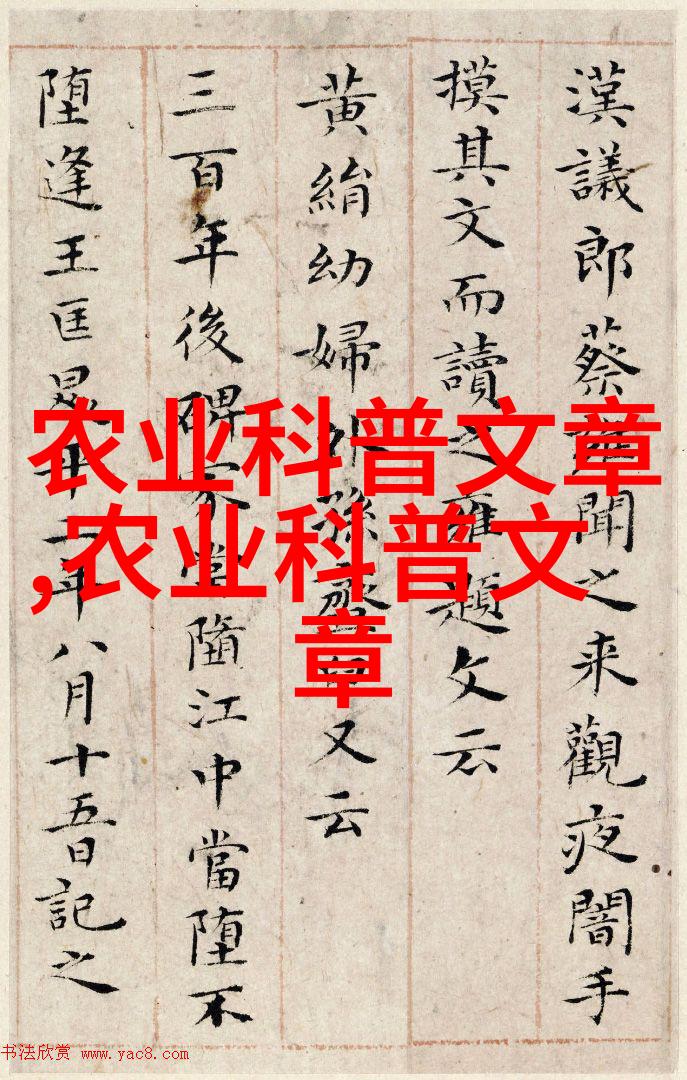 漢議郎蔡雍聞之来觀夜闇手
摸其文而讀之雍題文云
黄絹幼婦外孫齏臼又云
三百年後碑冢當墮江中當墮不
墮逢王匡晁廿二年八月十五日記之
农业科普文章
,农业科普文
章
书法欣赏 www.yac8.com